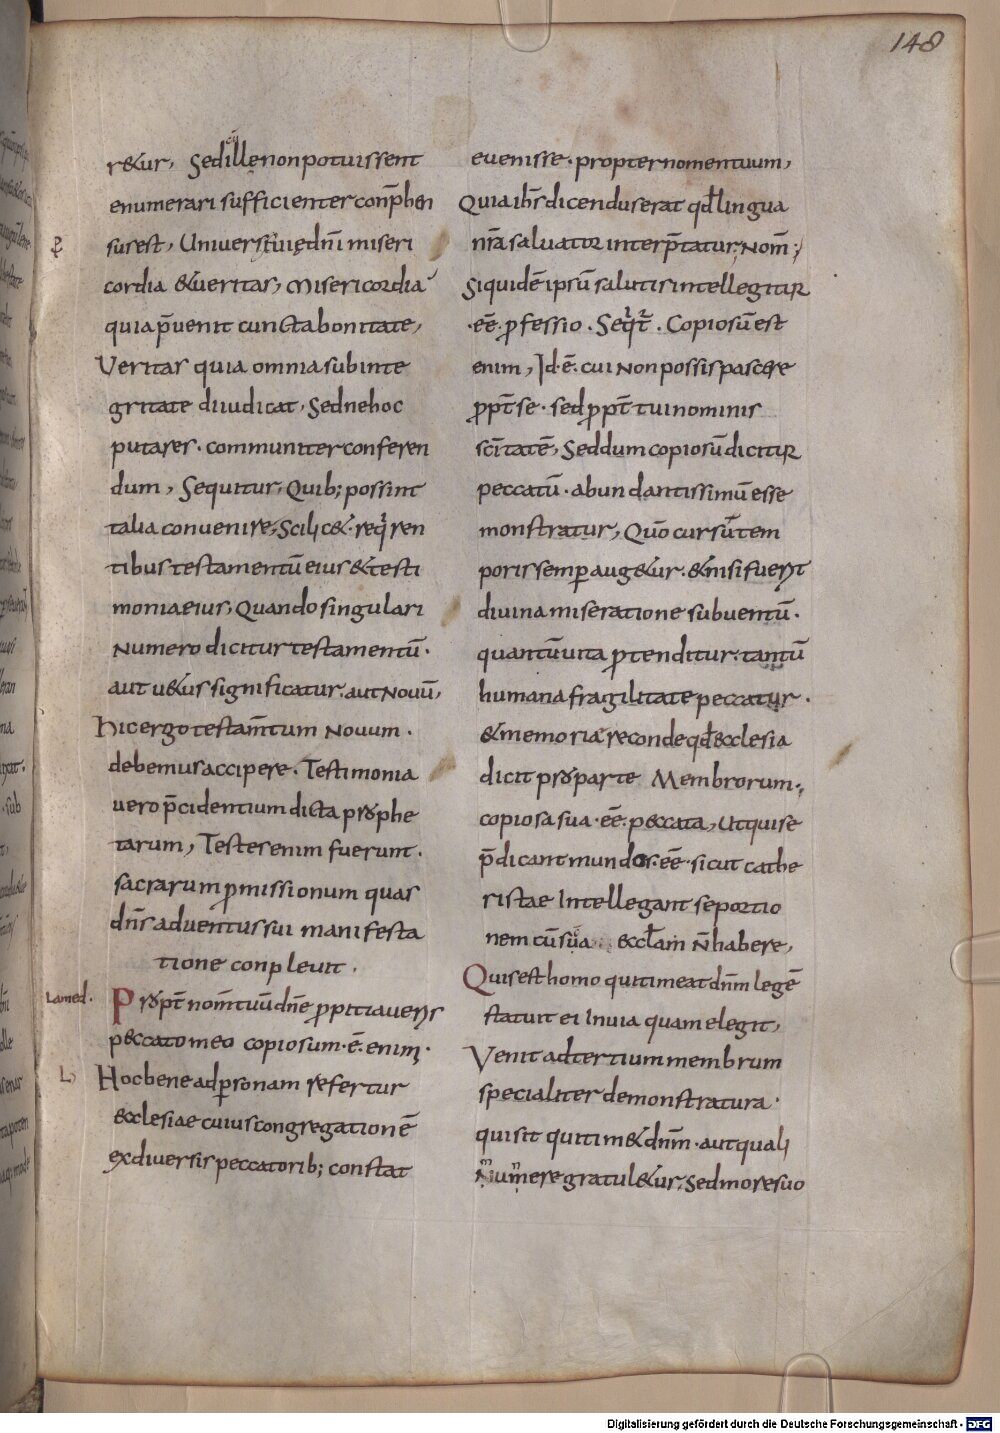 148
r&ur, Sed illę non potuissent
enumerari sufficienter conp̄hen
sus est, Universę uię dn̄i miseri
cordia &ueritas, Misericordia
quia p̄uenit cuncta bonitate,
Veritas quia omnia sub inte
gritate diiudicat, Sed ne hoc
putares. communiter conferen
dum, Sequitur, Quib; possint
talia convenire, Scilic&. req̇ren
tibus testamentū eius & testi
monia eius, Quando singulari
Numero dicitur testamentū.
aut u&us significatur. aut Novū,
Hic ergo testam̄tum Novum.
debemus accipere. Testimonia
vero p̄cidentium dicta prophe
tarum, Testes enim fuerunt.
sacrarum pmissionum quas
dn̄s adventus sui manifesta
tione conplevit.
Lamed. Propt̄ nom̄ tuū dn̄e ppitiaveris
peccato meo copiosum. ē. enim.
Hoc bene ad psonam refertur
ecclesiae cuius congregationē
ex diversis peccatorib; constat
evenisse. propter nomen tuum,
Quia ih̄s dicendus erat qd̄ lingua
nr̄a salvator interp̄tatur, Nom̄;
Siquidē ipsū salutis intellegitur
.eē. pfessio. Seq̇t̄. Copiosū est
enim, Id. ē. cui Non possis pascere
ppt̄ se. sed ppt̄ tui nominis
sc̄itatē, Sed dum copiosū dicitur
peccatū. abundantissimū esse
monstratur, Quō cursū tem
poris semp aug&ur. & nisi fuerit
divina miseratione subventū.
quantū vita ptenditur. tantū
humana fragilitate peccatur.
& memoria reconde qd̄ ecclesia
dicit pro parte Membrorum.,
copiosa sua. eē. peccata, Ut qui se
p̄dicant mundos. eē. sicut cathe
ristae Intellegant se portio
nem cū sua eccl̄am N̄ habere,
Quis est homo qui timeat dn̄m legē
statuit ei In via quam elegit,
Venit ad tertium membrum
specialiter demonstratura.
qui sit qui tim& dn̄m. aut quali
Munere gratul&ur, Sed more suo
Digitalisierung gefördert durch die Deutsche Forschungsgemeinschaft - DFG